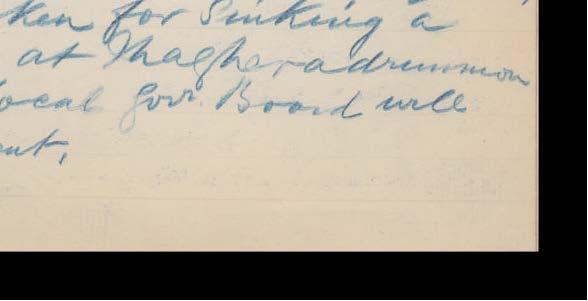 ken for Sinking a
at Magheradrummon
ocal Govr. Board will
ent,